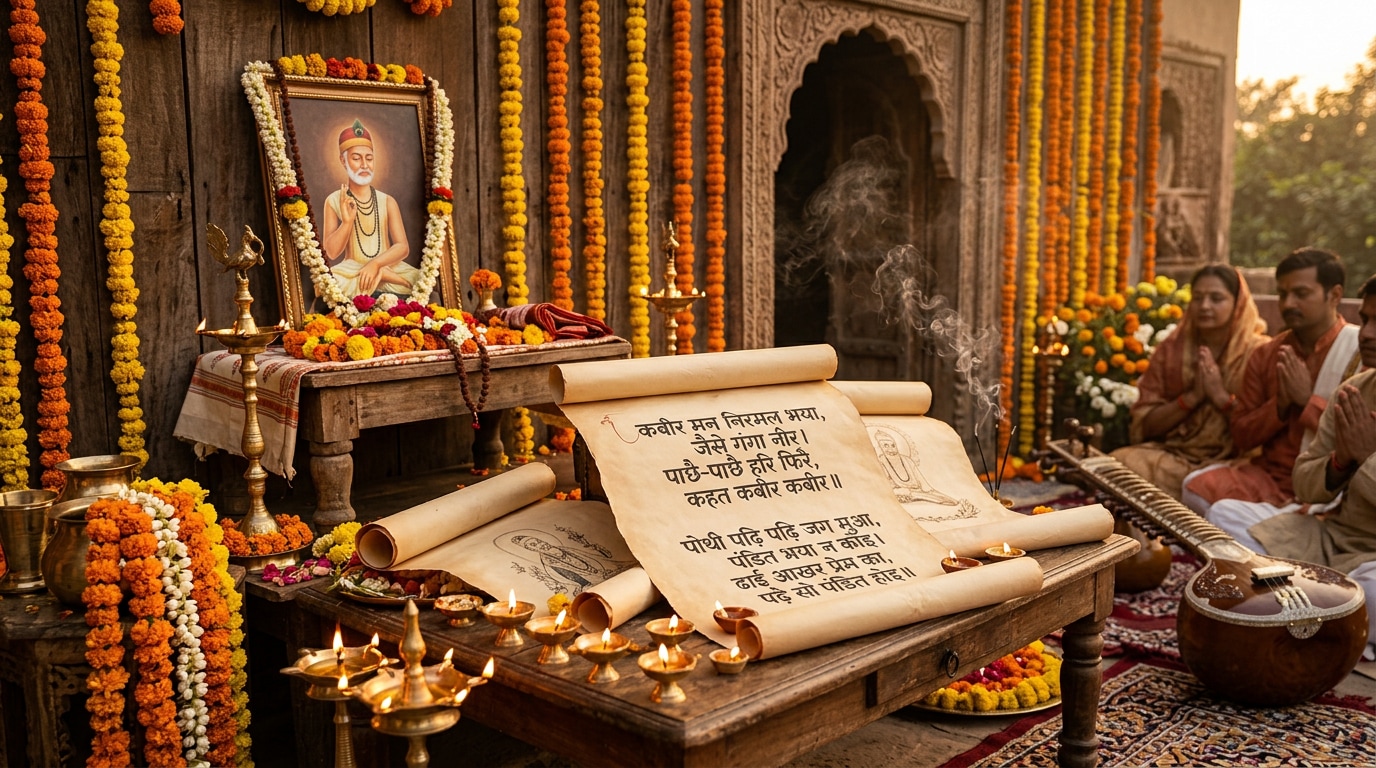 कबीर मन निरमल भया,
जैसे गंगा नीर।
पाछै-पाछै हरि फिरै,
कहत कबीर कबीर॥
पोथी पढ़ि पढ़ि जग मुआ,
पंडित भया न कोइ।
ढाई आखर प्रेम का,
पढ़े सो पंडित होइ॥